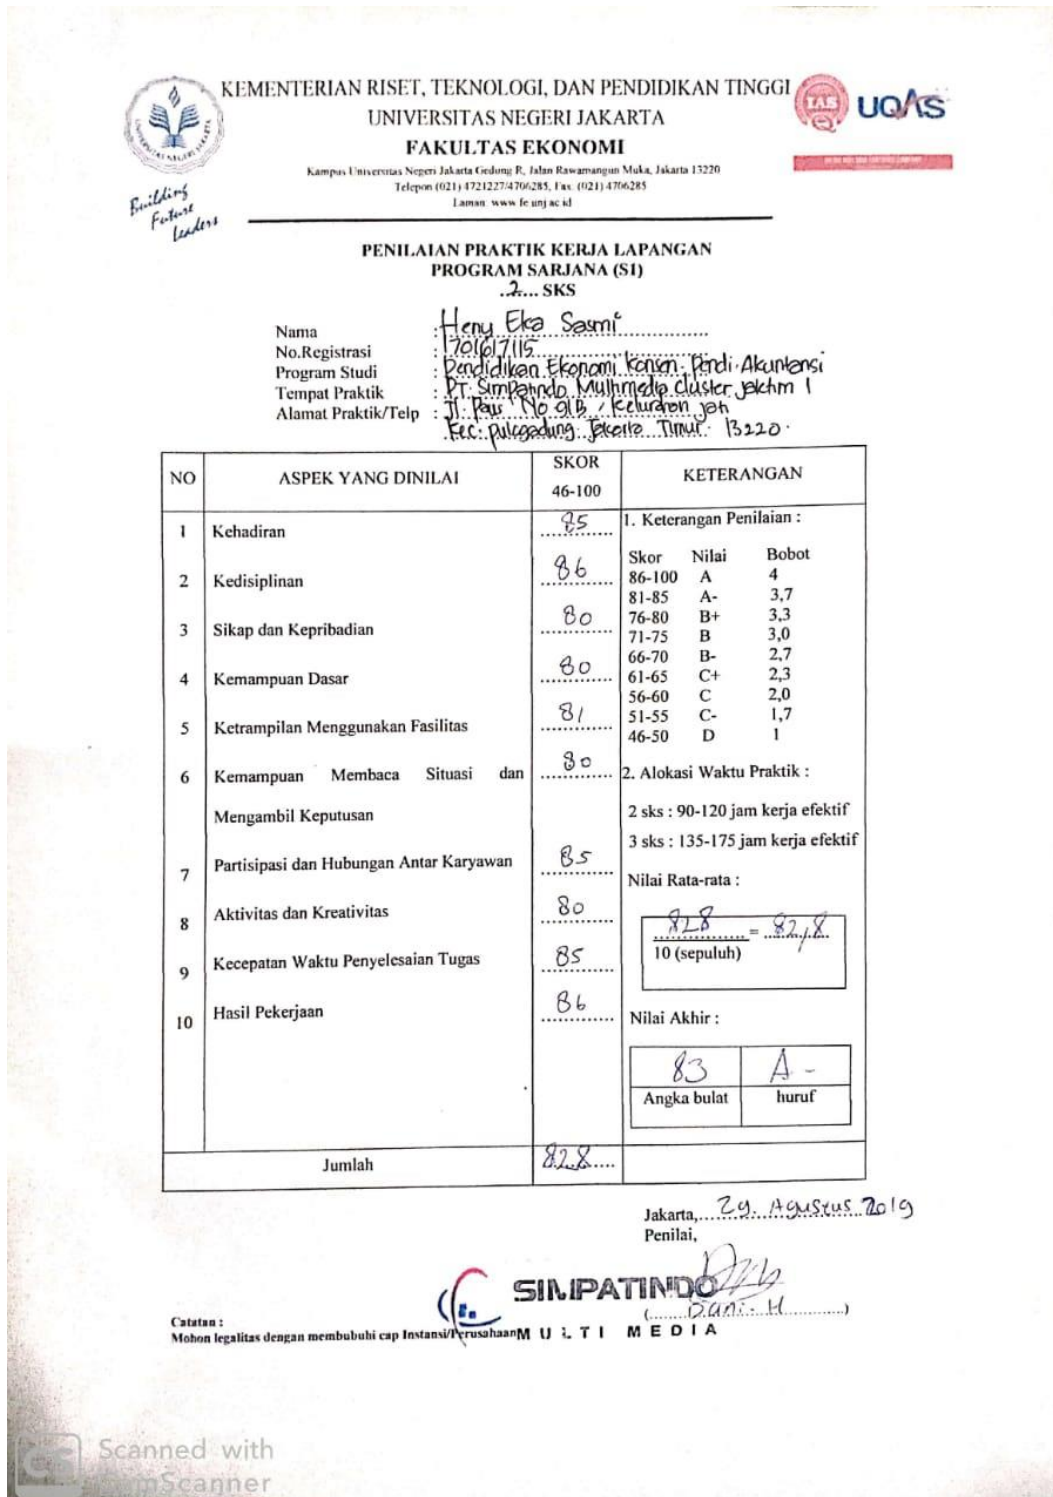 KEMENTERIAN RISET, TEKNOLOGI, DAN PENDIDIKAN TINGGI
UNIVERSITAS NEGERI JAKARTA
FAKULTAS EKONOMI
Kampus Universitas Negeri Jakarta Gedung R, Jalan Rawamangun Muka, Jakarta 13220
Telepon (021) 4721227/4706285, Fax. (021) 4706285
Laman: www.fe.unj.ac.id
IAS UQAS
Building
Future
Leaders
PENILAIAN PRAKTIK KERJA LAPANGAN
PROGRAM SARJANA (S1)
..2.... SKS
Nama : Heny Eka Sasmi
No.Registrasi : 1701617115
Program Studi : Pendidikan Ekonomi Konsen. Pendi. Akuntansi
Tempat Praktik : PT. Simpatindo Multimedia cluster jaktim 1
Alamat Praktik/Telp : Jl. Paus No 91B, Kelurahan jati
Kec. pulogadung. Jakarta Timur. 13220.
NO ASPEK YANG DINILAI SKOR 46-100 KETERANGAN
1 Kehadiran 85
2 Kedisiplinan 86
3 Sikap dan Kepribadian 80
4 Kemampuan Dasar 80
5 Ketrampilan Menggunakan Fasilitas 81
6 Kemampuan Membaca Situasi dan 80
Mengambil Keputusan
7 Partisipasi dan Hubungan Antar Karyawan 85
8 Aktivitas dan Kreativitas 80
9 Kecepatan Waktu Penyelesaian Tugas 85
10 Hasil Pekerjaan 86
1. Keterangan Penilaian :
Skor Nilai Bobot
86-100 A 4
81-85 A- 3,7
76-80 B+ 3,3
71-75 B 3,0
66-70 B- 2,7
61-65 C+ 2,3
56-60 C 2,0
51-55 C- 1,7
46-50 D 1
2. Alokasi Waktu Praktik :
2 sks : 90-120 jam kerja efektif
3 sks : 135-175 jam kerja efektif
Nilai Rata-rata :
828 = 82,8
10 (sepuluh)
Nilai Akhir :
83 A-
Angka bulat huruf
Jumlah 828
Jakarta, 29. Agustus 2019
Penilai,
SIMPATINDO
(Dani. H)
MULTI MEDIA
Catatan :
Mohon legalitas dengan membubuhi cap Instansi/Perusahaan
Scanned with
CamScanner